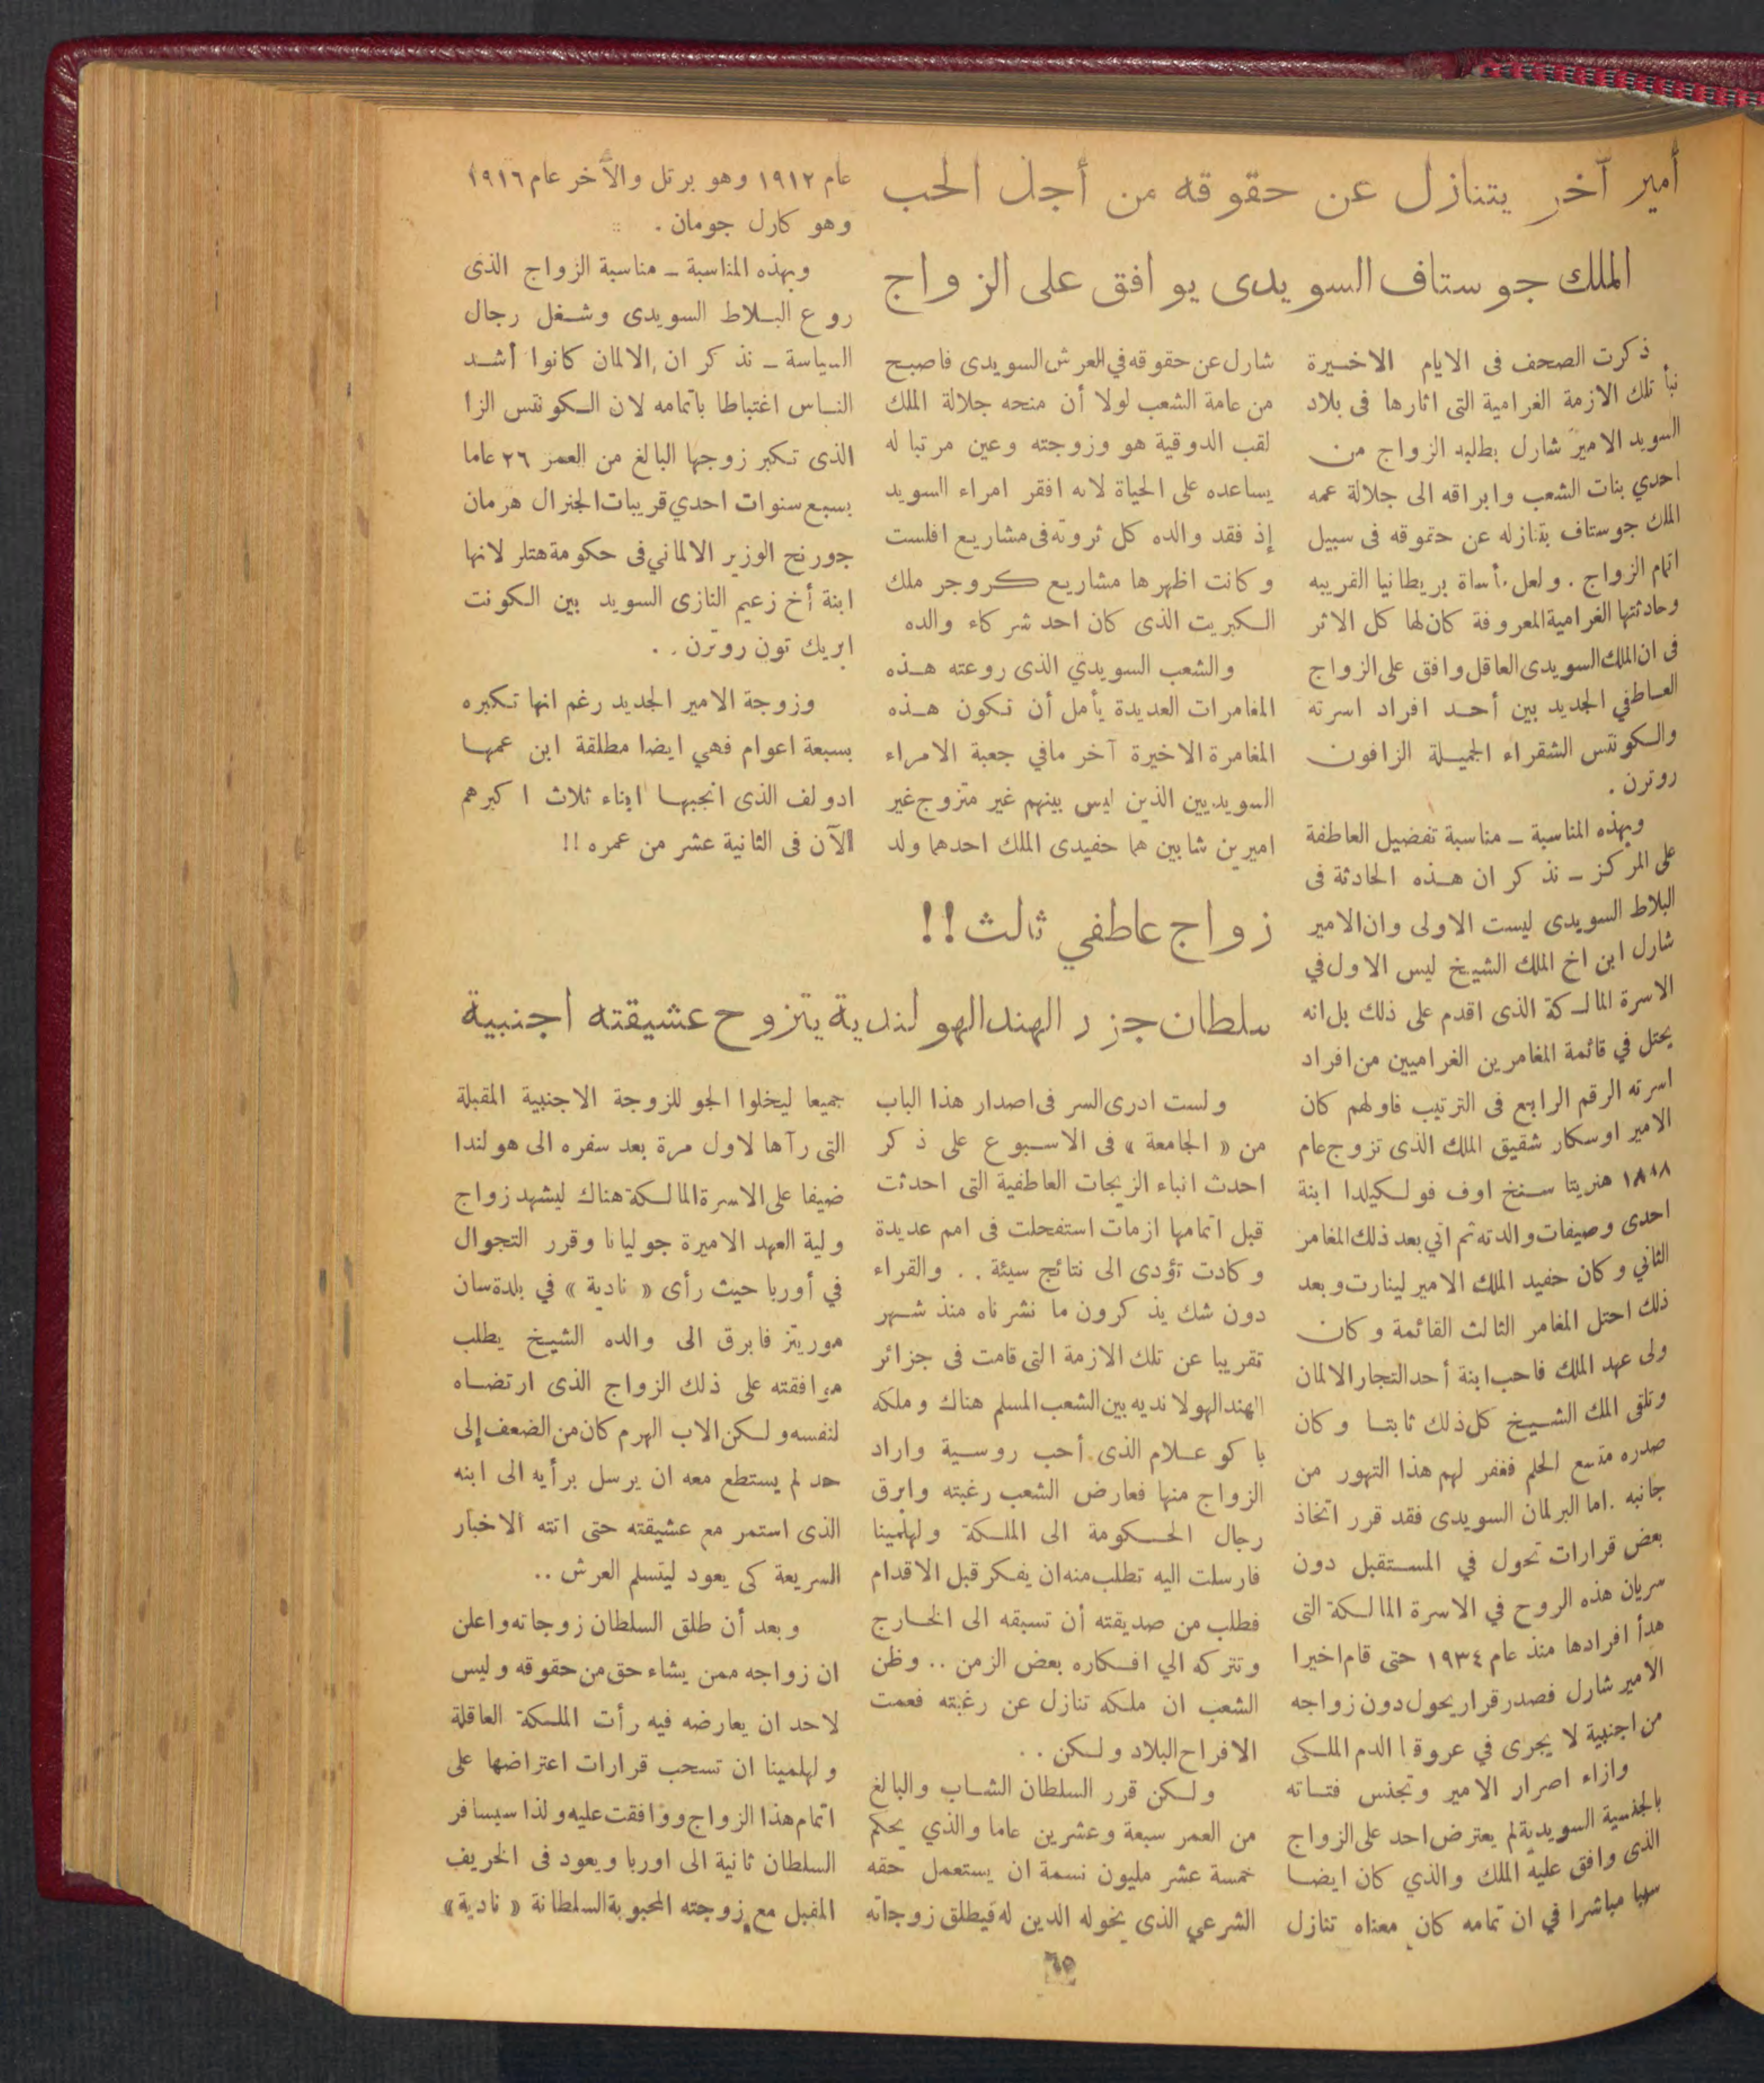 أمير آخر يتنازل عن حقوقه من أجل الحب
الملك جوستاف السويدى يوافق على الزواج
ذكرت الصحف فى الايام الاخيرة
نبأ تلك الازمة الغرامية التى اثارها فى بلاد
السويد الامير شارل بطلبه الزواج من
احدي بنات الشعب وابراقه الى جلالة عمه
الملك جوستاف بتنازله عن حقوقه فى سبيل
اتمام الزواج . ولعل مأساة بريطانيا القريبه
وحادثتها الغرامية المعروفة كان لها كل الاثر
فى ان الملك السويدى العاقل وافق على الزواج
العاطفي الجديد بين أحد افراد اسرته
والكونتس الشقراء الجميلة الزافون
روترن .
وبهذه المناسبة ــ مناسبة تفضيل العاطفة
على المركز ــ نذكر ان هذه الحادثة فى
البلاط السويدى ليست الاولى وان الامير
شارل ابن اخ الملك الشيخ ليس الاول في
الاسرة المالكة الذى اقدم على ذلك بل انه
يحتل في قائمة المغامرين الغراميين من افراد
اسرته الرقم الرابع فى الترتيب فاولهم كان
الامير اوسكار شقيق الملك الذى تزوج عام
١٨٨٨ هنريتا سنخ اوف فولكيلدا ابنة
احدى وصيفات والدته ثم اتي بعد ذلك المغامر
الثاني وكان حفيد الملك الامير لينارت وبعد
ذلك احتل المغامر الثالث القائمة وكان
ولى عهد الملك فاحب ابنة أحد التجار الالمان
وتلقى الملك الشيخ كل ذلك ثابتا وكان
صدره متسع الحلم فغفر لهم هذا التهور من
جانبه . اما البرلمان السويدى فقد قرر اتخاذ
بعض قرارات تحول في المستقبل دون
سريان هذه الروح في الاسرة المالكة التى
هدأ افرادها منذ عام ١٩٣٤ حتى قام اخيرا
الامير شارل فصدر قرار يحول دون زواجه
من اجنبية لا يجرى في عروقها الدم الملكى
وازاء اصرار الامير وتجنس فتاته
بالجنسية السويدية لم يعترض احد على الزواج
الذى وافق عليه الملك والذي كان ايضا
سببا مباشرا في ان تمامه كان معناه تنازل
شارل عن حقوقه في العرش السويدى فاصبح
من عامة الشعب لولا أن منحه جلالة الملك
لقب الدوقية هو وزوجته وعين مرتبا له
يساعده على الحياة لانه افقر امراء السويد
إذ فقد والده كل ثروته فى مشاريع افلست
وكانت اظهرها مشاريع كروجر ملك
الكبريت الذى كان احد شركاء والده
والشعب السويدي الذى روعته هذه
المغامرات العديدة يأمل أن تكون هذه
المغامرة الاخيرة آخر مافي جعبة الامراء
السويديين الذين ليس بينهم غير متزوج غير
اميرين شابين هما حفيدى الملك احدهما ولد
عام ١٩١٢ وهو برتل والآخر عام ١٩١٦
وهو كارل جومان .
وبهذه المناسبة ــ مناسبة الزواج الذى
روع البلاط السويدى وشغل رجال
السياسة ــ نذكر ان الالمان كانوا أشد
الناس اغتباطا باتمامه لان الكونتس الزا
الذى تكبر زوجها البالغ من العمر ٢٦ عاما
بسبع سنوات احدي قريبات الجنرال هرمان
جورنج الوزير الالماني فى حكومة هتلر لانها
ابنة أخ زعيم النازى السويد بين الكونت
ابريك تون روترن . .
وزوجة الامير الجديد رغم انها تكبره
بسبعة اعوام فهي ايضا مطلقة ابن عمها
ادولف الذى انجبها ابناء ثلاث اكبرهم
الآن فى الثانية عشر من عمره !!
زواج عاطفي ثالث !!
سلطان جزر الهند الهولندية يتزوج عشيقته اجنبية
ولست ادرى السر فى اصدار هذا الباب
من « الجامعة » فى الاسبوع على ذكر
احدث انباء الزيجات العاطفية التى احدثت
قبل اتمامها ازمات استفحلت فى امم عديدة
وكادت تؤدى الى نتائج سيئة . . والقراء
دون شك يذكرون ما نشرناه منذ شهر
تقريبا عن تلك الازمة التى قامت فى جزائر
الهند الهولانديه بين الشعب المسلم هناك وملكه
باكو علام الذى أحب روسية واراد
الزواج منها فعارض الشعب رغبته وابرق
رجال الحكومة الى الملكة ولهلمينا
فارسلت اليه تطلب منه ان يفكر قبل الاقدام
فطلب من صديقته أن تسبقه الى الخارج
وتتركه الي افكاره بعض الزمن .. وظن
الشعب ان ملكه تنازل عن رغبته فعمت
الافراح البلاد ولكن . .
ولكن قرر السلطان الشاب والبالغ
من العمر سبعة وعشرين عاما والذي يحكم
خمسة عشر مليون نسمة ان يستعمل حقه
الشرعي الذى يخوله الدين له فيطلق زوجاته
جميعا ليخلوا الجو للزوجة الاجنبية المقبلة
التى رآها لاول مرة بعد سفره الى هولندا
ضيفا على الاسرة المالكة هناك ليشهد زواج
ولية العهد الاميرة جوليانا وقرر التجوال
في أوربا حيث رأى « نادية » في بلدة سان
موريتز فابرق الى والده الشيخ يطلب
موافقته على ذلك الزواج الذى ارتضاه
لنفسه ولكن الاب الهرم كان من الضعف إلى
حد لم يستطع معه ان يرسل برأيه الى ابنه
الذى استمر مع عشيقته حتى اتته الاخبار
السريعة كى يعود ليتسلم العرش ..
وبعد أن طلق السلطان زوجاته واعلن
ان زواجه ممن يشاء حق من حقوقه وليس
لاحد ان يعارضه فيه رأت الملكة العاقلة
ولهلمينا ان تسحب قرارات اعتراضها على
اتمام هذا الزواج ووافقت عليه ولذا سيسافر
السلطان ثانية الى اوربا ويعود فى الخريف
المقبل مع زوجته المحبوبة السلطانة « نادية »
٦٥